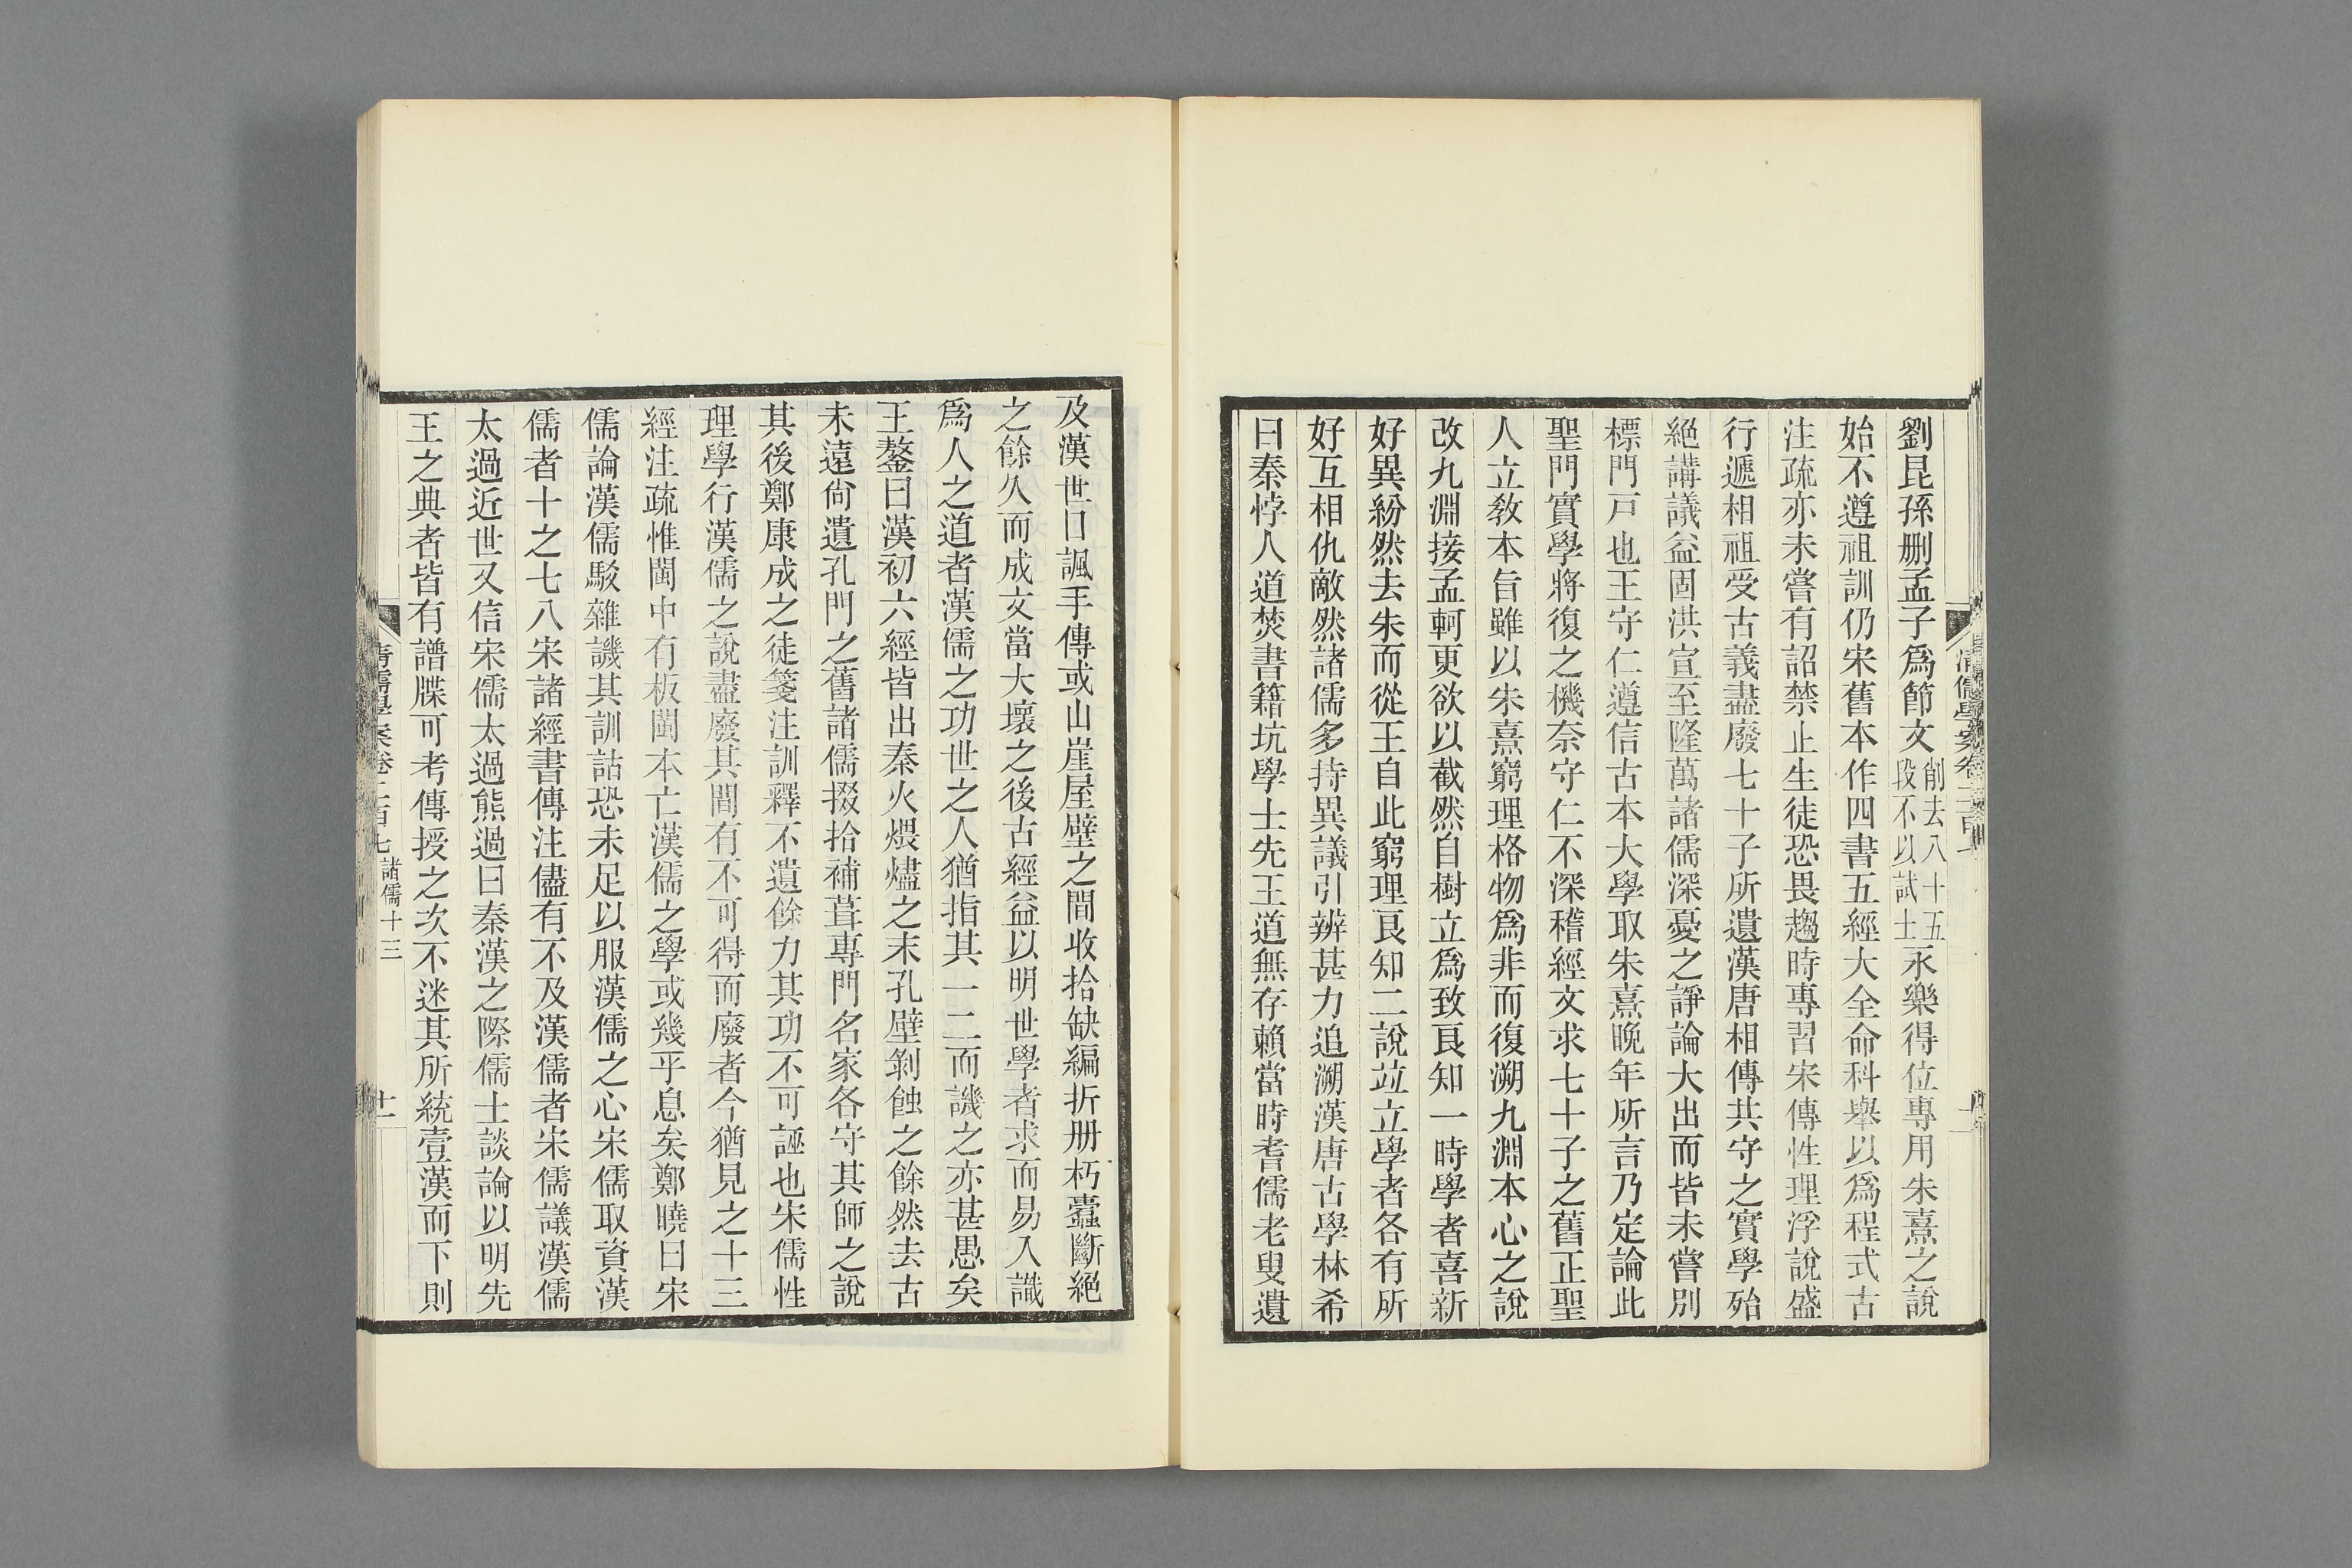 劉昆孫刪孟子爲節文削去八十五段不以試士永樂得位專用朱熹之說
始不遵祖訓仍宋舊本作四書五經大全命科舉以爲程式古
注疏亦未嘗有詔禁止生徒恐畏趨時專習宋傳性理浮說盛
行遞相祖受古義盡廢七十子所遺漢唐相傳共守之實學殆
絕講議益固洪宣至隆萬諸儒深憂之諍論大出而皆未嘗別
標門戸也王守仁遵信古本大學取朱熹晚年所言乃定論此
聖門實學將復之機奈守仁不深稽經文求七十子之舊正聖
人立教本旨雖以朱熹窮理格物爲非而復溯九淵本心之說
改九淵接孟軻更欲以截然自樹立爲致良知一時學者喜新
好異紛然去朱而從王自此窮理良知二說竝立學者各有所
好互相仇敵然諸儒多持異議引辨甚力追溯漢唐古學林希
曰秦悖人道焚書籍坑學士先王道無存賴當時耆儒老叟遺
及漢世口諷手傳或山崖屋壁之間收拾缺編折册朽蠹斷絕
之餘久而成文當大壞之後古經益以明世學者求而易入識
爲人之道者漢儒之功世之人猶指其一二而譏之亦甚愚矣
王鏊曰漢初六經皆出秦火煨燼之末孔壁剝蝕之餘然去古
未遠尙遺孔門之舊諸儒掇拾補葺專門名家各守其師之說
其後鄭康成之徒箋注訓釋不遺餘力其功不可誣也宋儒性
理學行漢儒之說盡廢其間有不可得而廢者今猶見之十三
經注疏惟閩中有板閩本亡漢儒之學或幾乎息矣鄭曉曰宋
儒論漢儒駁雜譏其訓詁恐未足以服漢儒之心宋儒取資漢
儒者十之七八宋諸經書傳注儘有不及漢儒者宋儒議漢儒
太過近世又信宋儒太過熊過曰秦漢之際儒士談論以明先
王之典者皆有譜牒可考傳授之次不迷其所統壹漢而下則
清儒學案卷二百七 諸儒十三
十一